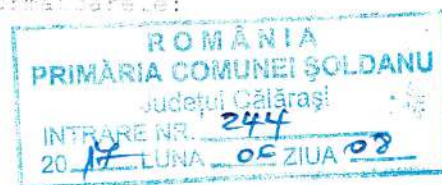 ROMÂNIA
PRIMĂRIA COMUNEI ŞOLDANU
Judeţul Călăraşi
INTRARE NR. 244
2017 LUNA 06 ZIUA 08